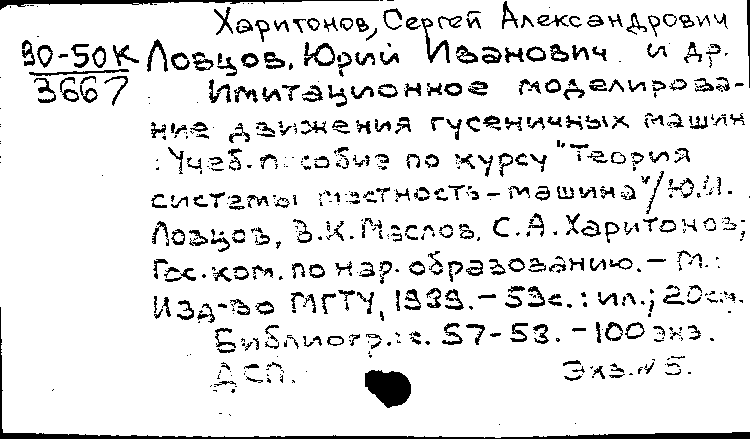 Харитонов, Сергей Александрович
90-50К Ловцов, Юрий Иванович и др.
3667 Имитационное моделирова-
ние движения гусеничных машин
: Учеб. пособие по курсу "Теория
системы местность-машина"/Ю.И.
Ловцов, В.К. Маслов, С.А. Харитонов;
Гос. ком. по нар. образованию. - М.:
Изд-во МГТУ, 1989. - 59с. : ил.; 20см.
Библиогр.: с. 57-58. - 100 экз.
ДСП. Экз. N 5.